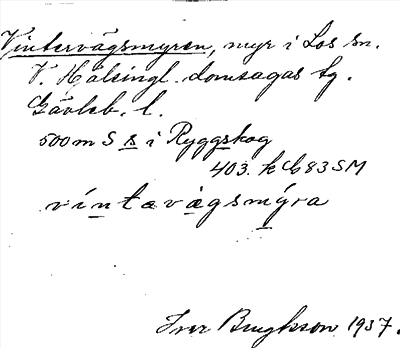 Vintervägsmyren, myr i Los sn.
V. Hälsingl. domsagas tg.
Gävleb. l.
500 m S s i Ryggskog
403. k 83 SM
víntavägsmýra
Ivar 1937.